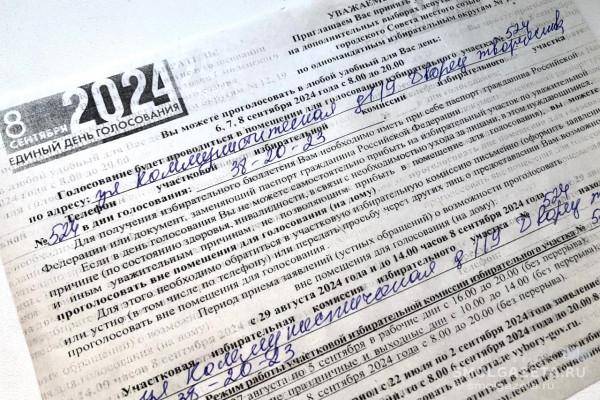 УВАЖАЕМ
Приглашаем Вас принять
на дополнительных выборах депутат
городского Совета шестого созыв
по одномандатным избирательным округам №
Вы можете проголосовать в любой удобный для Вас день:
6, 7, 8 сентября 2024 года с 8.00 до 20.00
8
СЕНТЯБРЯ
2024
ЕДИНЫЙ ДЕНЬ ГОЛОСОВАНИЯ
Голосование будет проводиться в помещении для голосования избирательного участка № 524
по адресу: ул Коммунистическая д 119 Дворец творчества
Телефон участковой избирательной комиссии избирательного участка
№ 524 в дни голосования: 38-20-23
Для получения избирательного бюллетеня Вам необходимо иметь при себе паспорт гражданина Российской
Федерации или документ, заменяющий паспорт гражданина Российской Федерации.
Если в день голосования Вы не можете самостоятельно прибыть на избирательный участок по уважительной
причине (по состоянию здоровья, инвалидности, в связи с необходимостью ухода за лицами, в этом нуждающимися,
и иным уважительным причинам, не позволяющим прибыть в помещение для голосования), вы можете
проголосовать вне помещения для голосования (на дому)
Для этого необходимо обратиться в участковую избирательную комиссию письменно (оформить заявление)
или устно (в том числе, по телефону) или передать просьбу через других лиц о предоставлении Вам возможности
проголосовать вне помещения для голосования (на дому).
Период приема заявлений (устных обращений) о возможности проголосовать
вне помещения для голосования (на дому):
с 29 августа 2024 года и до 14.00 часов 8 сентября 2024 года
Участковая избирательная комиссия избирательного участка № 524
ул Коммунистическая д 119 Дворец т
38-20-23
Режим работы участковой избирательной комиссии избирательного участка № 5
августа по 5 сентября в рабочие дни с 16.00 до 20.00 (без перерыва),
праздничные и выходные дни с 10.00 до 14.00 (без перерыва)
8 сентября 2024 года с 8.00 до 20.00 (без перерыва).
с 22 июля по 2 сентября 2024 года
vybory-gov.ru.
SMOLGAZETA.RU
smolgazeta.ru